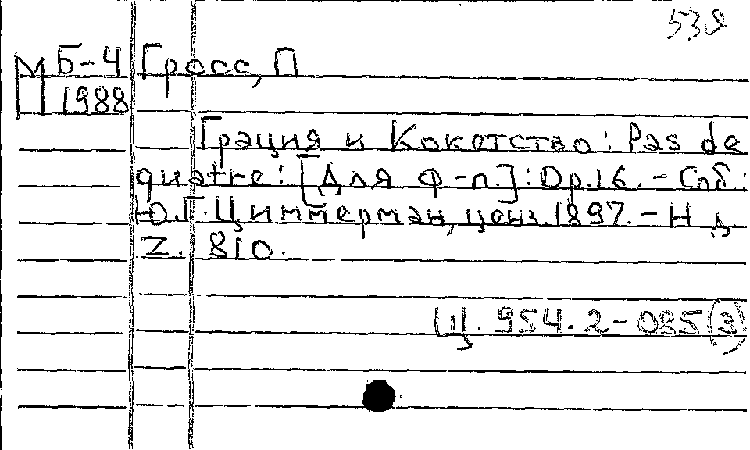 538
М Б-4 Гросс, П
1988
Грация и Кокетство: Pas de
quatre: [Для ф-п.]: Op. 16. - Спб.:
Ю.Г. Циммерман, ценз. 1897. - Н. д.
Z. 810.
Ц. 954.2-085(3)